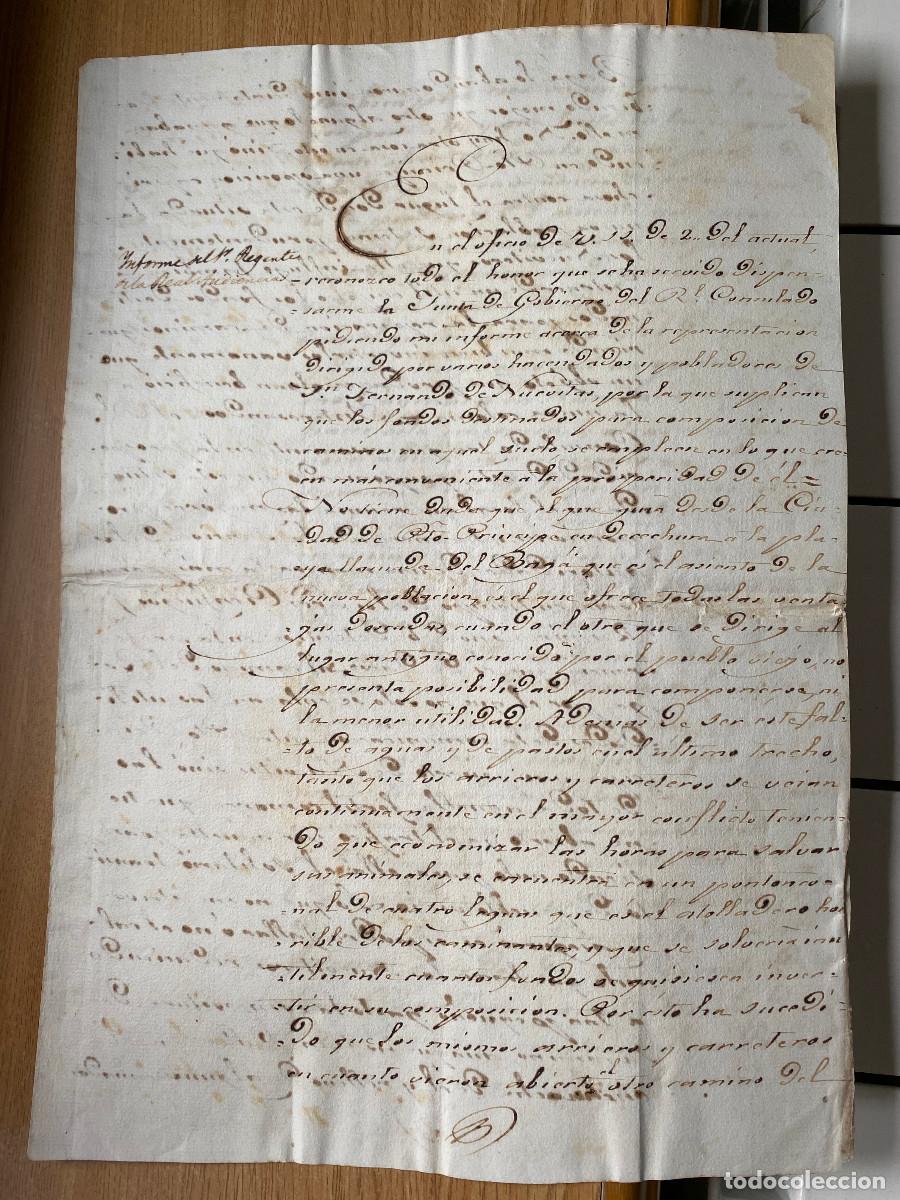 Informe del Sr. Regente
de la Real Audiencia
En el oficio de V. SS. de 2 del actual,
reconozco todo el honor que se ha servido dispen-
sarme la Junta de Gobierno del Rl. Consulado
pidiendo mi informe acerca de la representacion
dirigida por varios hacendados y pobladores de
Sn. Fernando de Nuevitas, por la que suplican
que los fondos destinados para composicion de
caminos en aquel suelo se empleen en lo que cre-
en mas conveniente á la prosperidad de él=
No tiene duda que el que guia desde la Ciu-
dad de Pto. Principe en derechura a la pla-
ya llamada del Bagá que es el asiento de la
nueva poblacion, es el que ofrece todas las venta-
jas deseadas, cuando el otro que se dirige al
lugar antiguo conocido por el pueblo viejo, no
presenta posibilidad para componerse, ni
la menor utilidad. Ademas de ser este fal-
to de aguas y de pastos en el ultimo trecho,
tanto que los arrieros y carreteros se veian
continuamente en el mayor conflicto tenien-
do que economizar las horas para salvar
sus animales, se encuentra en un pontonco-
nal de cuatro leguas que es el atolladero ho-
rrible de los caminantes, y que se solverian
utilmente cuantos fondos se quisiesen inver-
tir en su composicion. Por esto ha sucedi-
do que los mismos arrieros y carreteros
en cuanto vieron abierto el otro camino del
todocoleccion